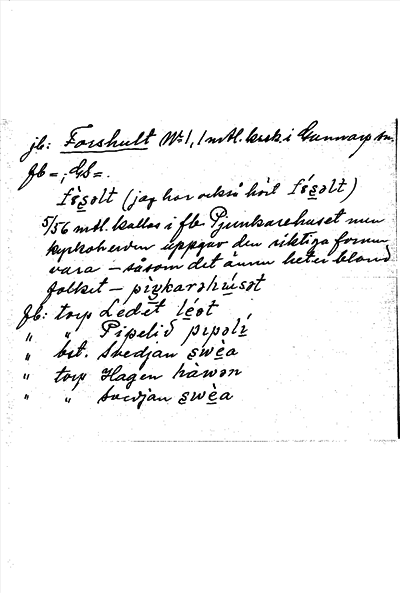 jb: Forshult No 1, 1 mtl. krsk. i Gunnarp sn.
fb =; GS =.
fɵ̀s̱əlt (jag har också hört fɵ́s̱əlt)
5/56 mtl. kallas i fb Pjunkarehuset men
kyrkoherden uppgav den riktiga formen
vara – såsom det ännu heter bland
folket – pìṉkarəhúsət
fb: torp Ledet léət
" " Pipelid pipəlí
" bst. Svedjan s̱wèa
" torp Hagen hàwən
" " Svedjan s̱wèa